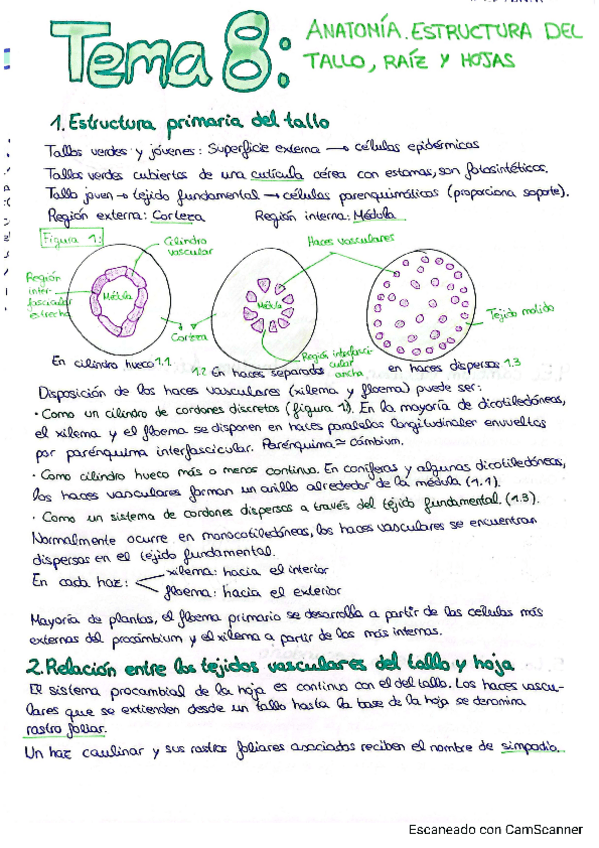 Tema 8:
ANATOMÍA. ESTRUCTURA DEL
TALLO, RAÍZ Y HOJAS
1. Estructura primaria del tallo
Tallos verdes y jóvenes: Superficie externa → células epidérmicas
Tallos verdes cubiertos de una cutícula cérea con estomas, son fotosintéticos.
Tallo joven → tejido fundamental → células parenquimáticas (proporciona soporte).
Región externa: Corteza Región interna: Médula
Figura 1:
Cilindro
vascular
Haces vasculares
Región
inter-
fascicular
estrecha
Médula
Médula
Corteza
Tejido molido
Región interfasci-
cular
ancha
En cilindro hueco 1.1
1.2 En haces separados
en haces dispersos 1.3
Disposición de los haces vasculares (xilema y floema) puede ser:
· Como un cilindro de cordones discretos (figura 1). En la mayoría de dicotiledóneas,
el xilema y el floema se disponen en haces paralelos longitudinales envueltos
por parénquima interfascicular. Parénquima ≃ cámbium.
· Como cilindro hueco más o menos continuo. En coníferas y algunas dicotiledóneas,
los haces vasculares forman un anillo alrededor de la médula (1.1).
· Como un sistema de cordones dispersos a través del tejido fundamental. (1.3).
Normalmente ocurre en monocotiledóneas, los haces vasculares se encuentran
dispersos en el tejido fundamental.
En cada haz:
xilema: hacia el interior
floema: hacia el exterior
Mayoría de plantas, el floema primario se desarrolla a partir de las células más
externas del procámbium y el xilema a partir de las más internas.
2. Relación entre los tejidos vasculares del tallo y hoja
El sistema procambial de la hoja es continuo con el del tallo. Los haces vascu-
lares que se extienden desde un tallo hasta la base de la hoja se denomina
rastro foliar.
Un haz caulinar y sus rastros foliares asociados reciben el nombre de simpodio.
Escaneado con CamScanner